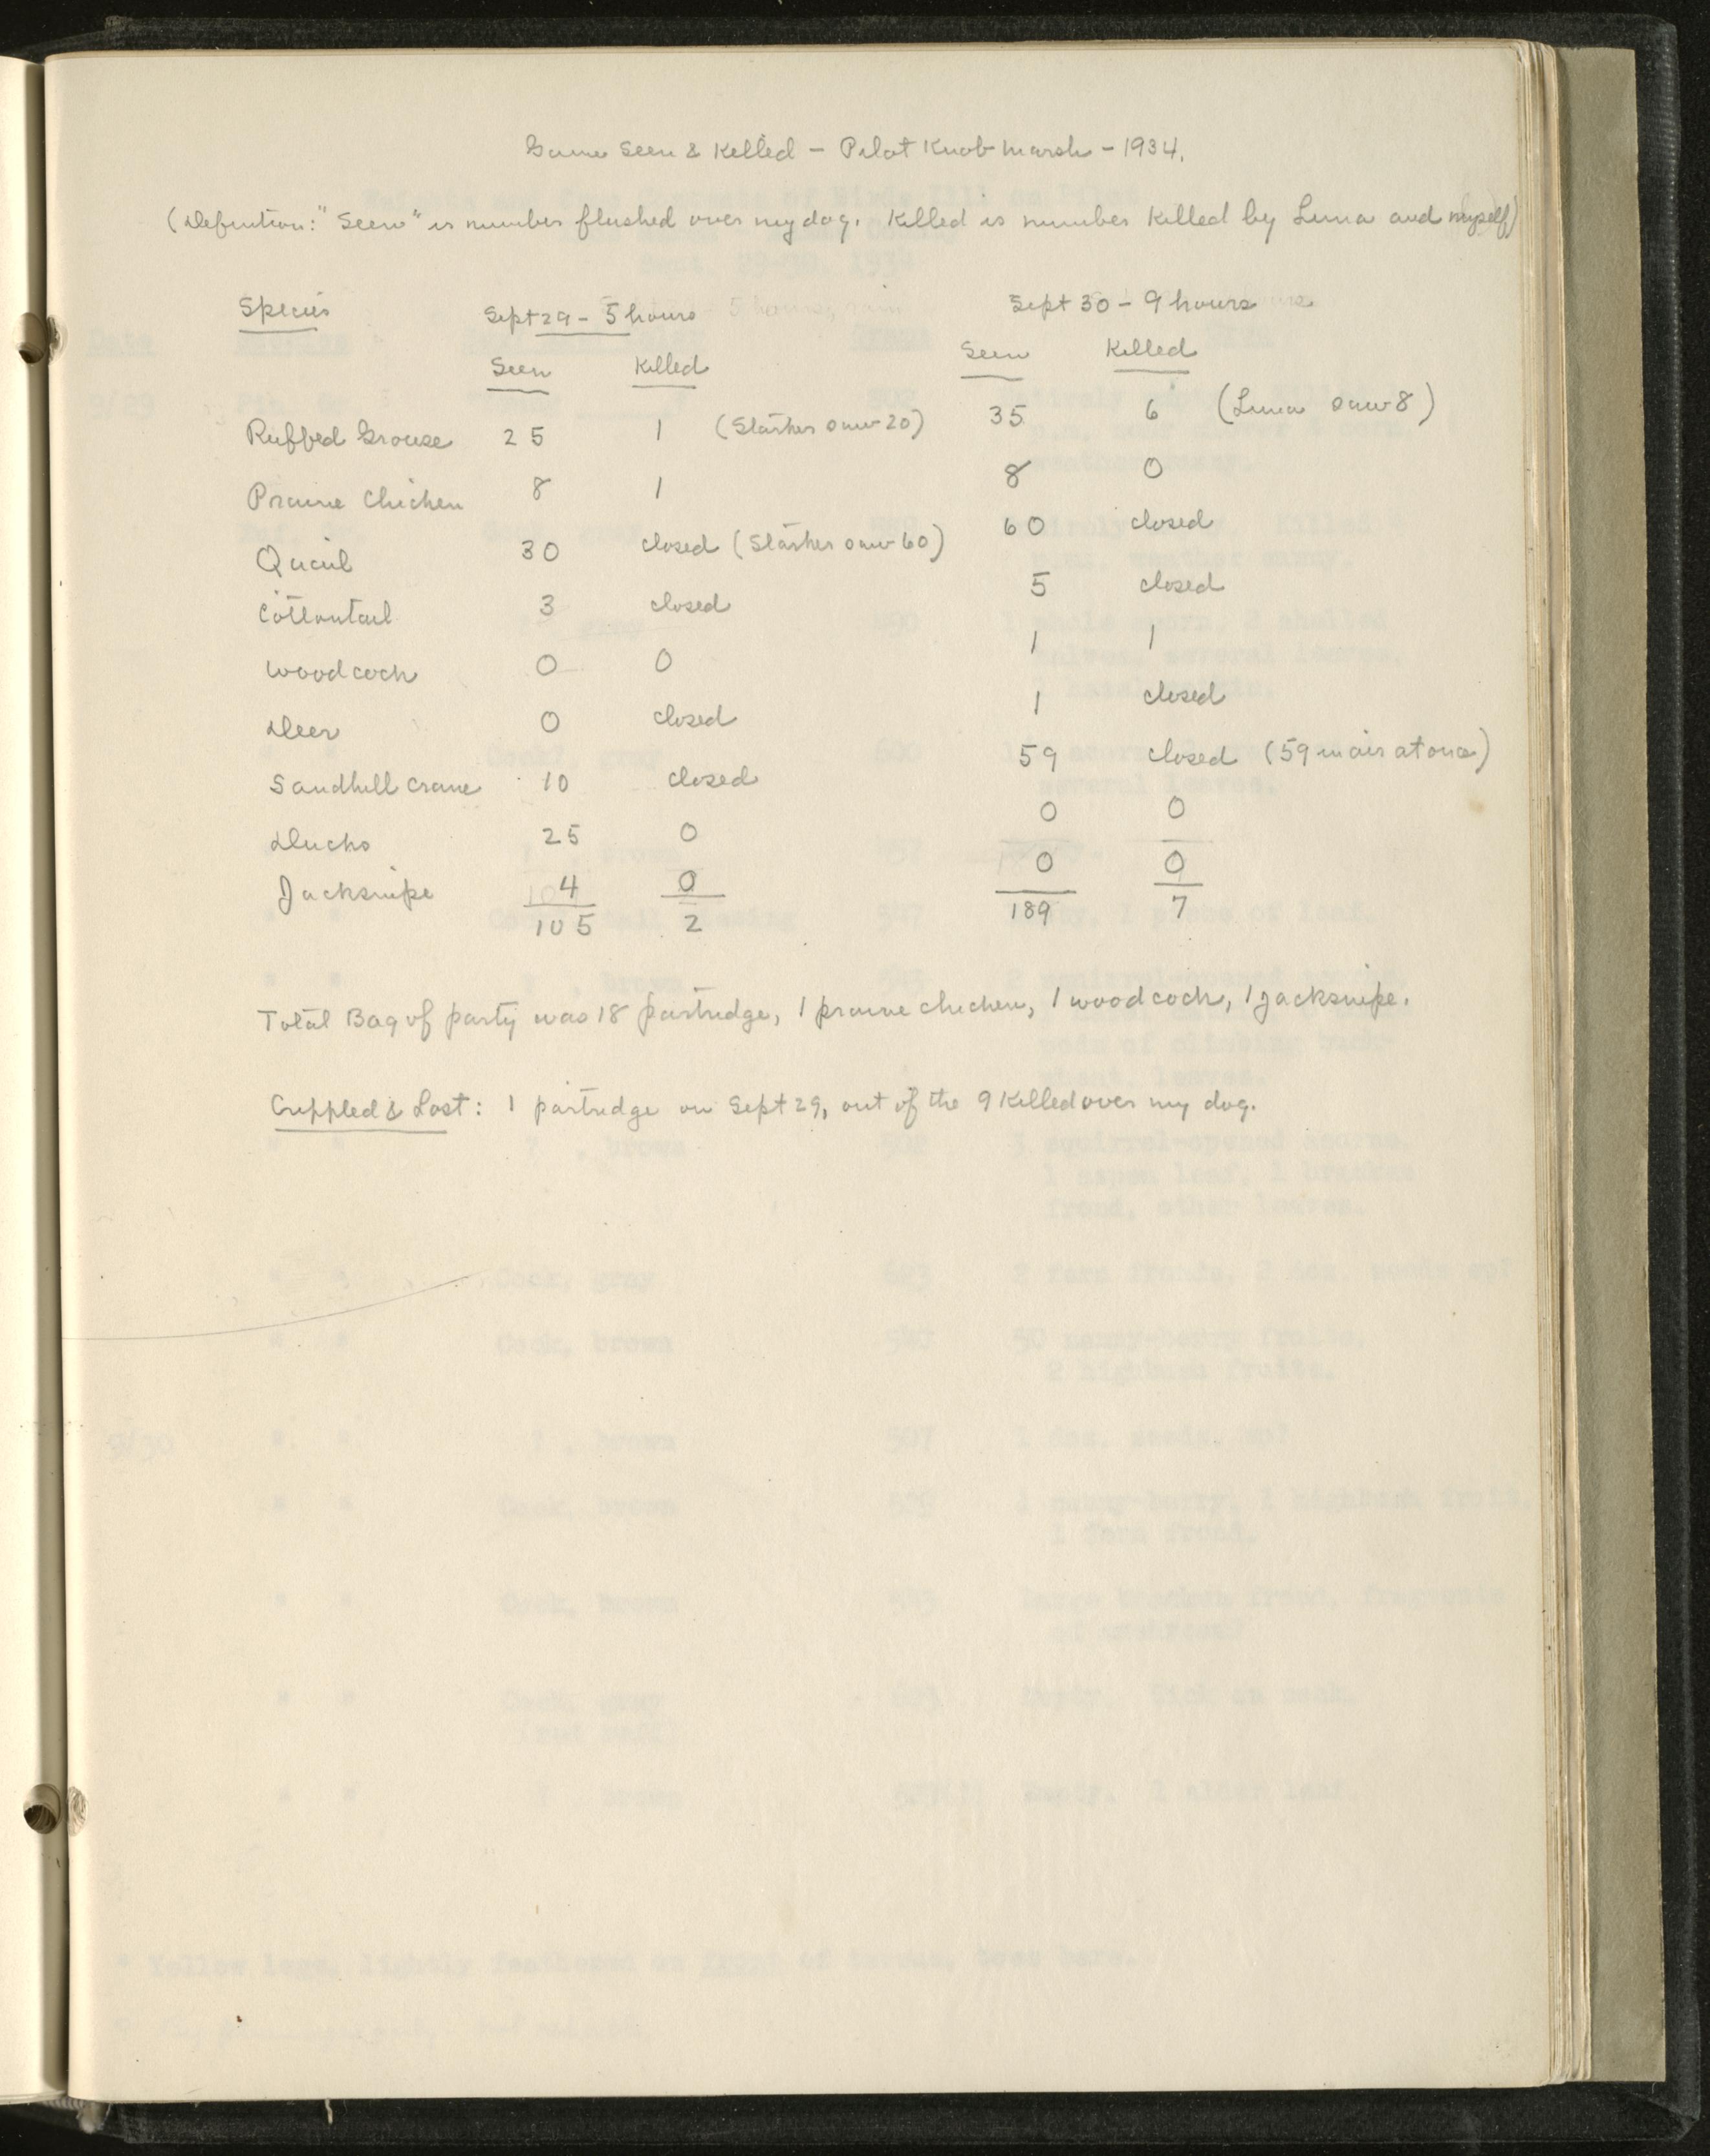 Game Seen & Killed – Pilot Knob Marsh – 1934.
(Definition: "Seen" is number flushed over my dog. Killed is number killed by Luna and myself)
Species Sept 29 – 5 hours Sept 30 – 9 hours
Seen Killed Seen Killed
Ruffed Grouse 25 1 (Starker saw 20) 35 6 (Luna saw 8)
Prairie Chicken 8 1 8 0
Quail 30 closed (Starker saw 60) 60 closed
Cottontail 3 closed 5 closed
Woodcock 0 0 1 1
Deer 0 closed 1 closed
Sandhill Crane 10 closed 59 closed (59 in air at once)
Ducks 25 0 0 0
Jacksnipe 4 0 0 0
105 2 189 7
Total Bag of party was 18 partridge, 1 prairie chicken, 1 woodcock, 1 jacksnipe.
Crippled & Lost: 1 partridge on Sept 29, out of the 9 killed over my dog.